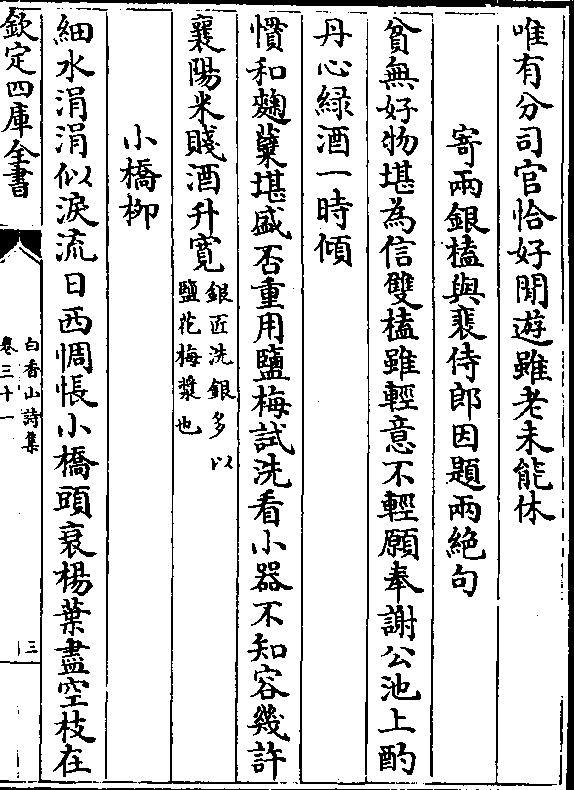 唯有分司官恰好閒遊雖老未能休
寄兩銀榼與裴侍郎因題兩絶句
貧無好物堪為信雙榼雖輕意不輕願奉謝公池上酌
丹心緑酒一時傾
慣和麴糱堪盛否重用鹽梅試洗看小器不知容幾許
襄陽米賤酒升寛銀匠洗銀多以
鹽花梅漿也
小橋柳
細水涓涓似淚流日西惆悵小橋頭衰楊葉盡空枝在
欽定四庫全書
白香山詩集
卷三十一
三